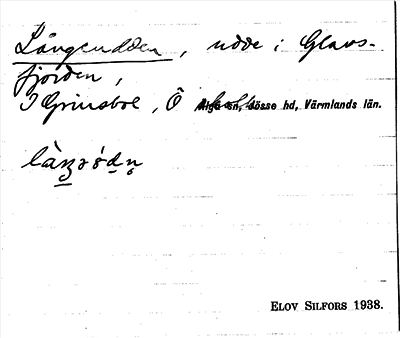 Långeudden, udde i Glavs-
fjorden,
I Grinsbol, Ö
Älgå sn, Jösse hd, Värmlands län.
ELOV SILFORS 1938.